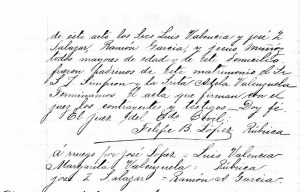 de este acto los Sres Luis Valencia y José L
Salazar, Ramón García, y Jesús Muñoz
todos mayores de edad y de este domicilio
fueron padrinos de este matrimonio el Sr
S J Simpson y la Srita Adela Valenzuela
Terminamos el acta que firman ante el
juez los contrayentes y testigos — Doy fé
El juez del Edo Civil;
Felipe B. López, Rúbrica
á ruego por José Lopez — Luis Valencia
Margarita Valenzuela — Rúbrica
José L Salazar — Ramón A García